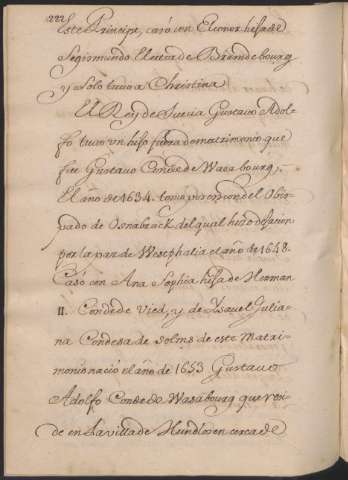 222
Este Principe, casó con Eleonor hija de
Segismundo Elector de Brandebourg
y solo tuvo a Christina
El Rey de Suecia Gustavo Adol-
fo tuvo un hijo fuera de matrimonio que
fue Gustavo Conde de Wasabourg,
El año de 1634. tomo posesion del Obis-
pado de Osnabrack del qual hizo desacion
por la paz de Westphalia el año de 1648.
Caso con Ana Sophia hija de Herman
II. Conde de Vied, y de Ysavel Julia-
na Condesa de Solms de este Matri-
monio nació el año de 1653 Gustavo
Adolfo Conde de Wasabourg que resi-
de en la villa de cerca de